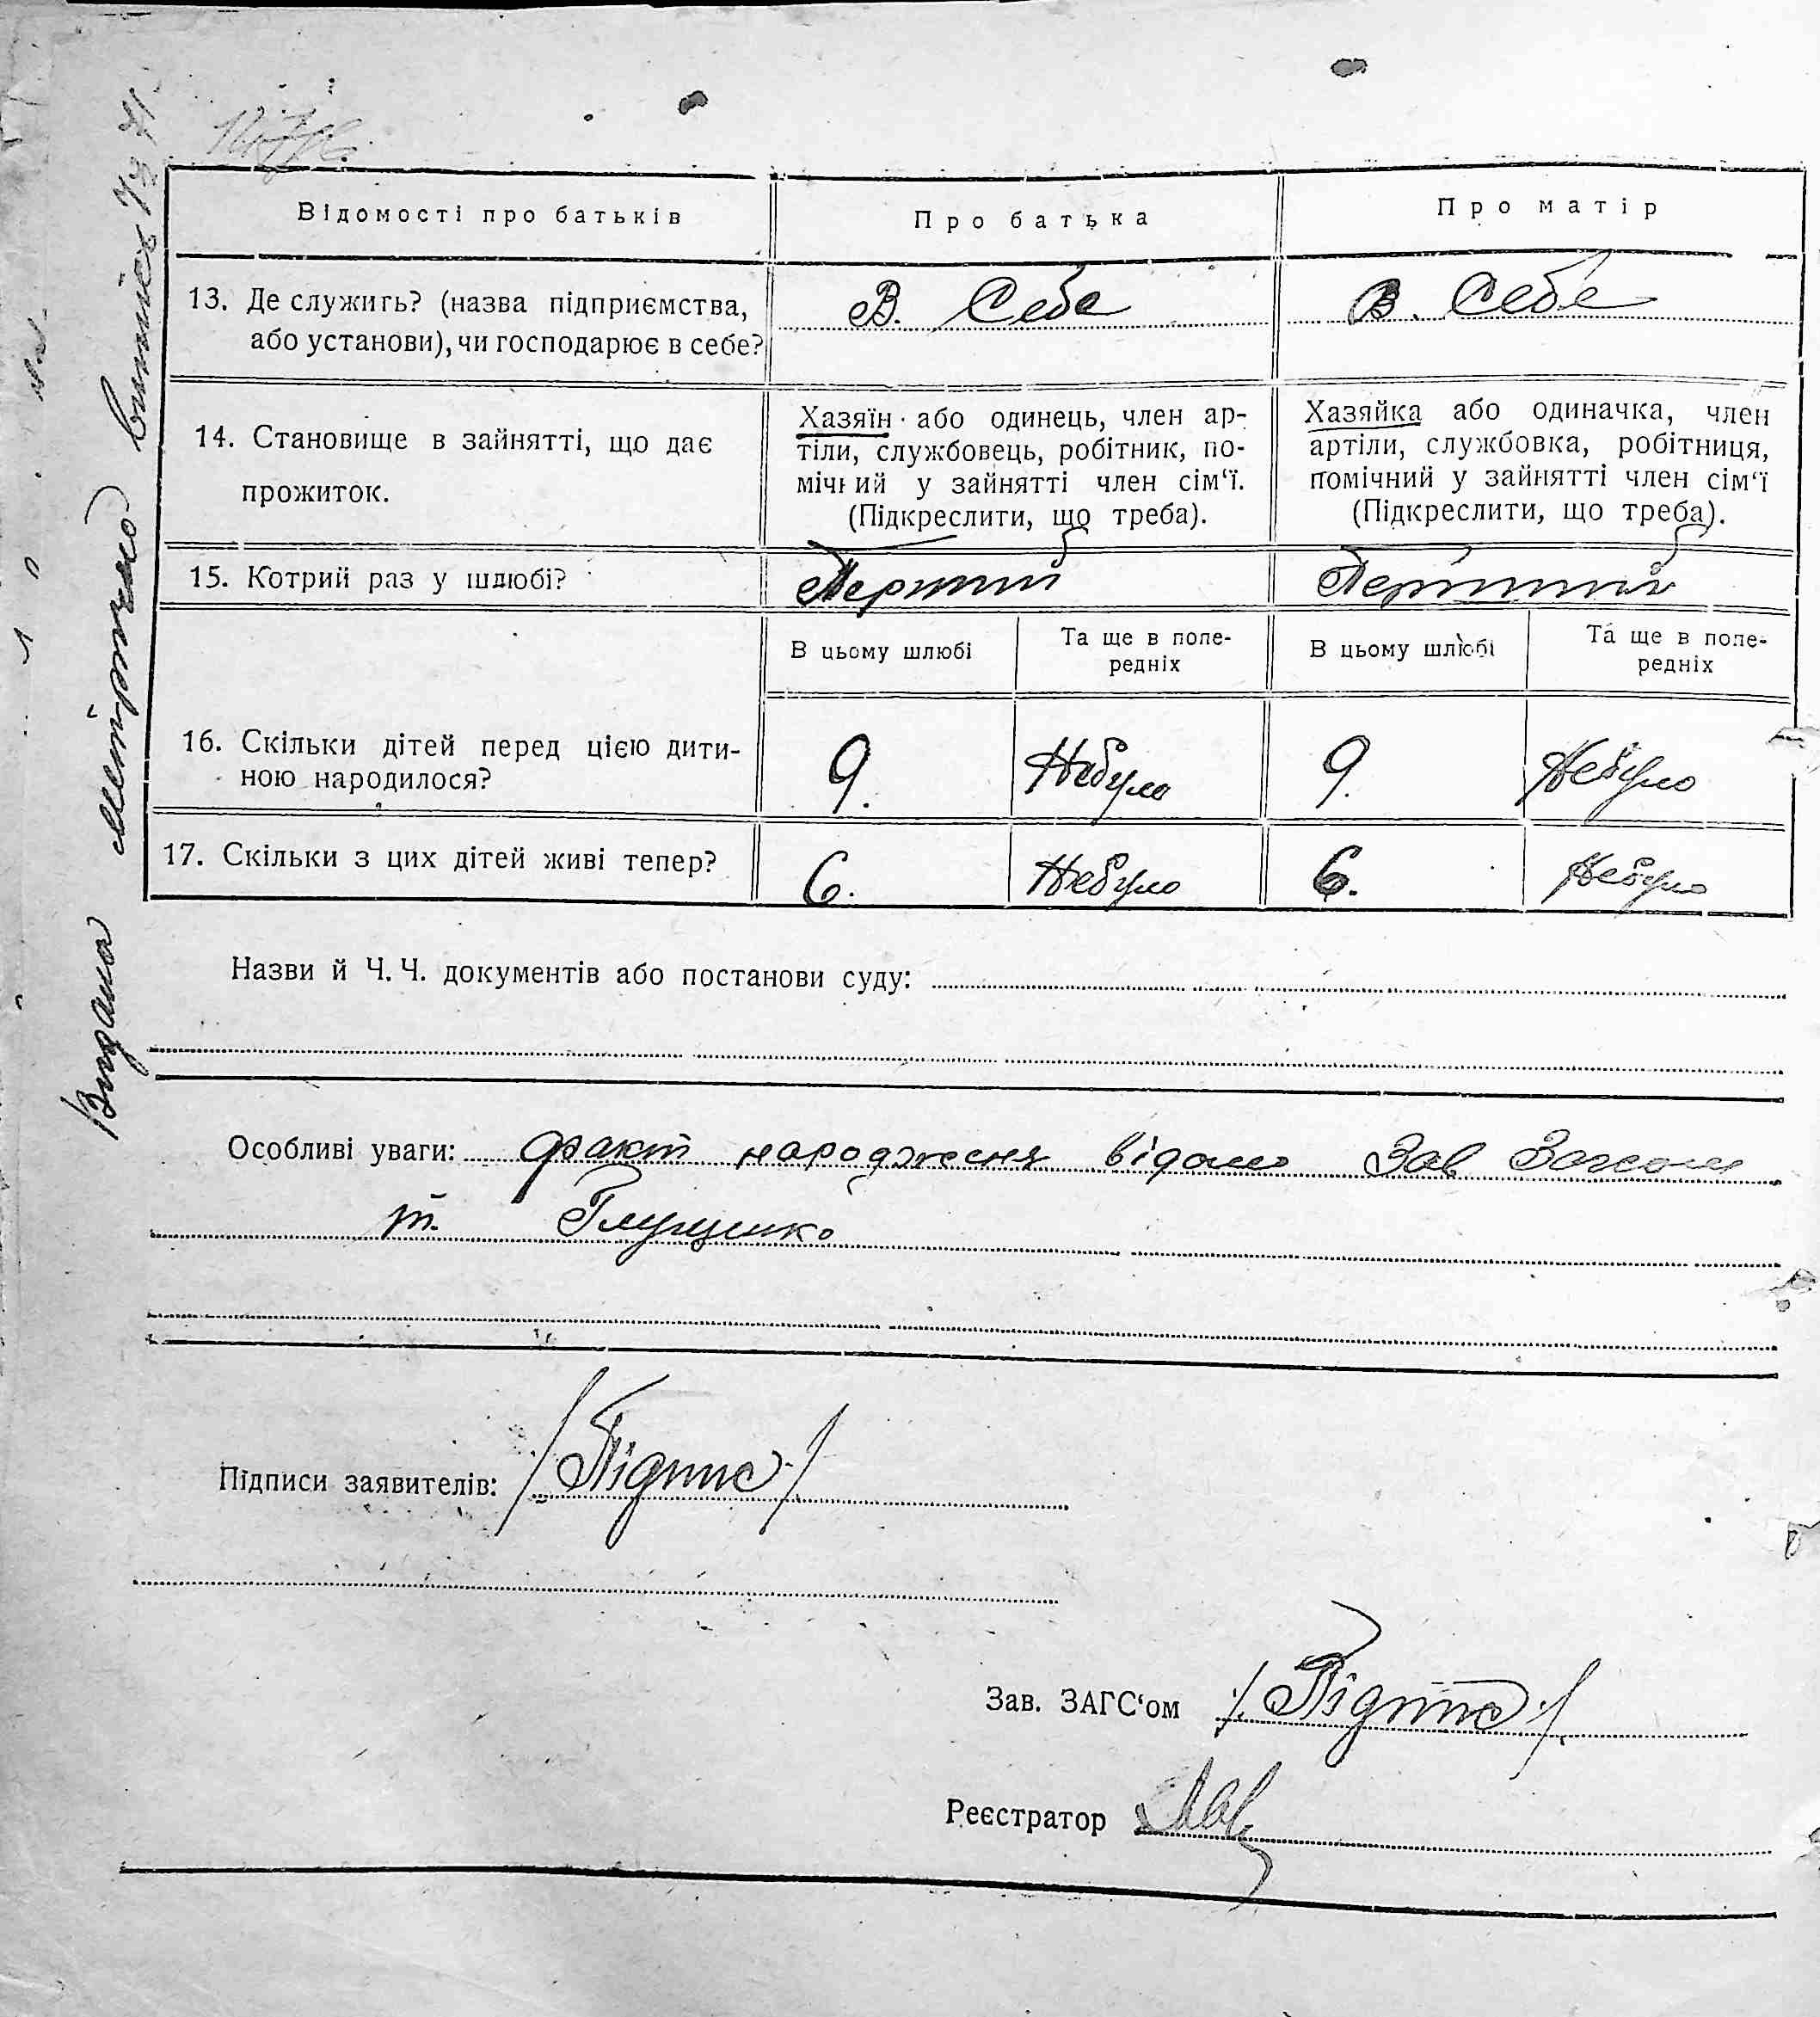 Відомості про батьків
Про батька
Про матір
13. Де служить? (назва підприємства,
або установи), чи господарює в себе?
В. Себе
В. Себе
14. Становище в зайнятті, що дає
прожиток.
Хазяїн або одинець, член ар-
тіли, службовець, робітник, по-
мічний у зайнятті член сім‘ї.
(Підкреслити, що треба).
Хазяйка або одиначка, член
артіли, службовка, робітниця,
помічний у зайнятті член сім‘ї
(Підкреслити, що треба).
15. Котрий раз у шлюбі?
Перший
Перший
В цьому шлюбі
Та ще в попе-
редніх
В цьому шлюбі
Та ще в попе-
редніх
16. Скільки дітей перед цією дити-
ною народилося?
9.
Небуло
9.
Небуло
17. Скільки з цих дітей живі тепер?
6.
Небуло
6.
Небуло
Назви й Ч. Ч. документів або постанови суду:
Особливі уваги: факт народження відомо Зав Загсом
т. Глущенко
Підписи заявителів: /Підпис/
Зав. ЗАГС‘ом /Підпис/
Реєстратор
Видано метричну